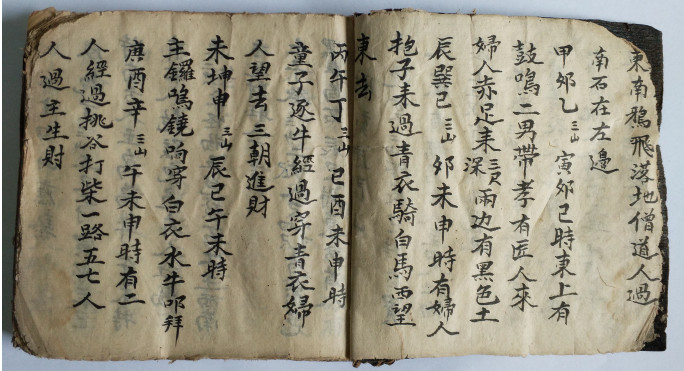 東南鴉飛漫地僧道人過
南石在左邊
甲卯乙三山寅卯巳時東上有
鼓鳴二男帶孝有匠人來
婦人赤足來深三尺兩边有黑色土
辰巽巳三山卯未申時有婦人
抱子來過青衣騎白馬西望
東去
丙午丁三山巳酉未申時
童子逐牛經過穿青衣婦
人望去三朝進財
未坤申三山辰巳午未時
主鑼鳴鏡响穿白衣水牛叩拜
庚酉辛三山午未申時有二
人經過挑谷打柴一路五七人
人過主生財